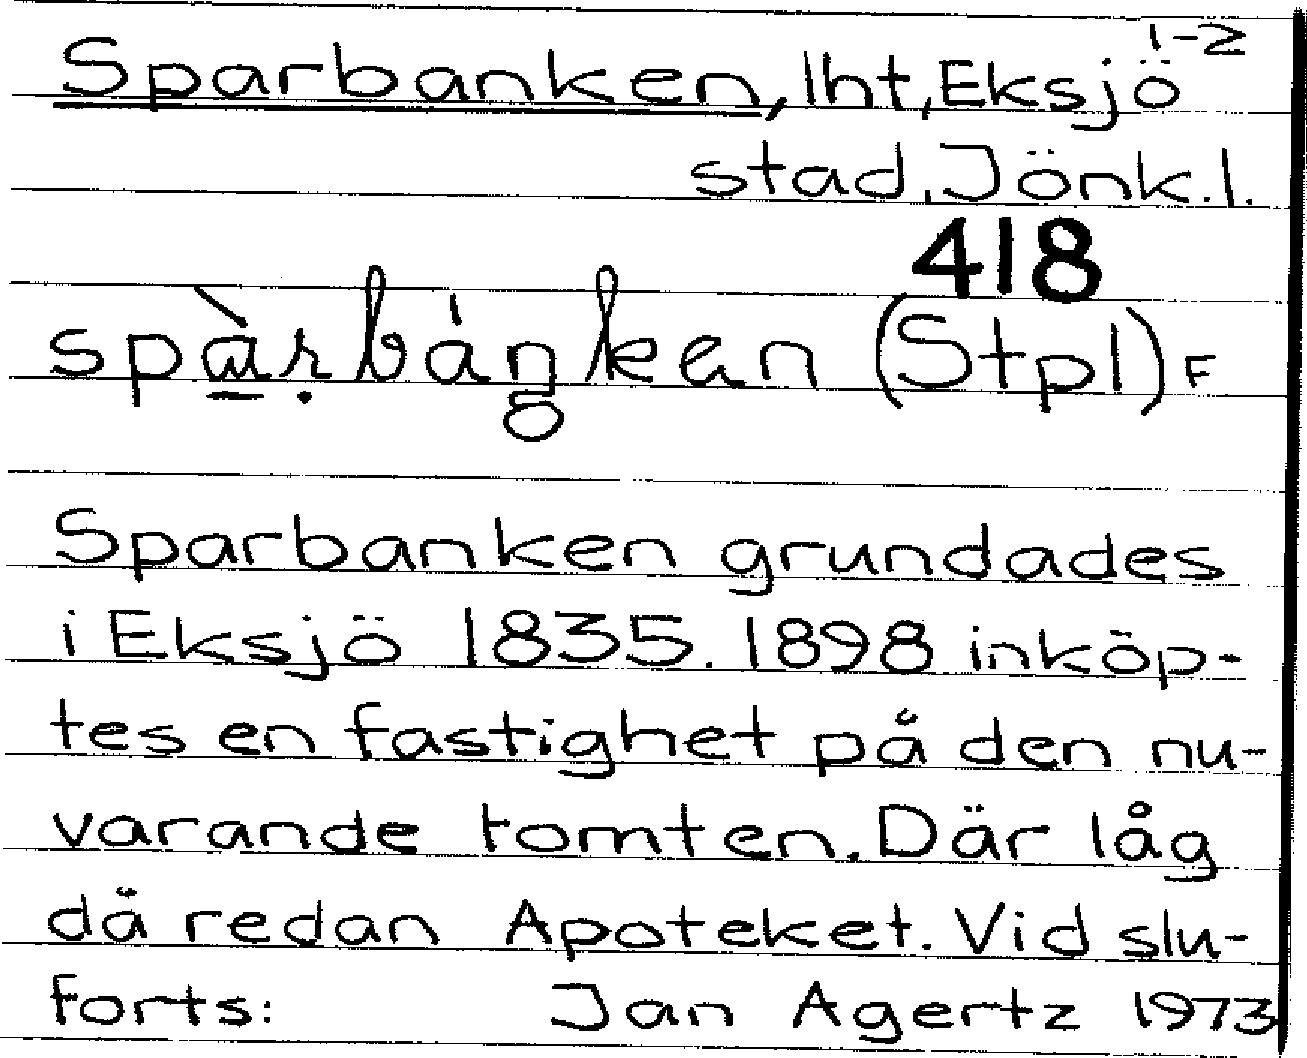 1-2
Sparbanken, lht, Eksjö
stad, Jönk.l.
418
(Stpl) F
Sparbanken grundades
i Eksjö 1835. 1898 inköp-
tes en fastighet på den nu-
varande tomten. Där låg
då redan Apoteket. Vid slu-
forts: Jan Agertz 1973